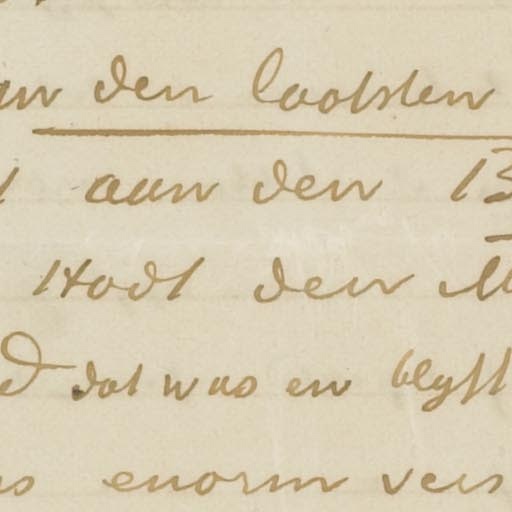 an den laatsten
aan den 13
Hodt den M
d dat was en blyft
s enorm vers